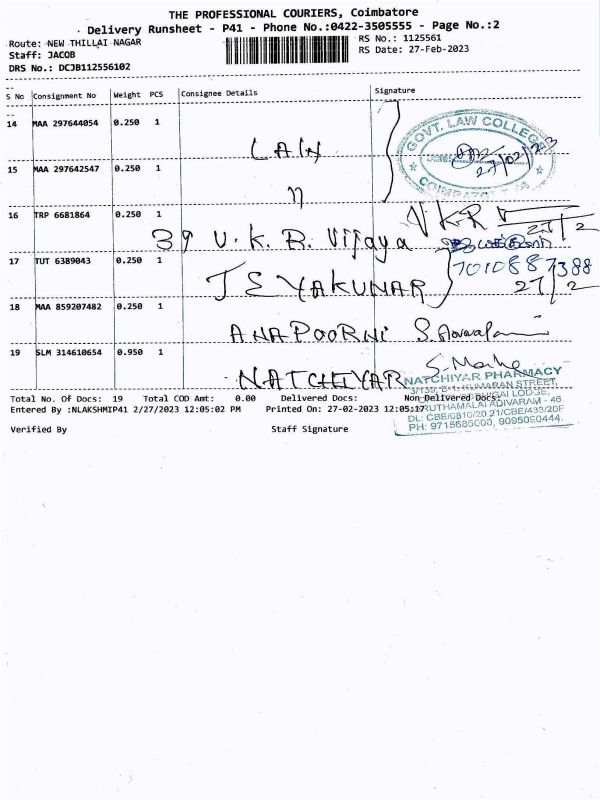 THE PROFESSIONAL COURIERS, Coimbatore
Delivery Runsheet - P41 - Phone No.:0422-3505555 - Page No.:2
Route: NEW THILLAI NAGAR
RS No.: 1125561
Staff: JACOB
RS Date: 27-Feb-2023
DRS No.: DCJB112556102
S No Consignment No Weight PCS Consignee Details Signature
14 MAA 297644054 0.250 1
LAW
GOVT. LAW COLLEGE
27/02/23
15 MAA 297642547 0.250 1
16 TRP 6681864 0.250 1
VKR
27/2
39 V.K.R. Vijaya
17 TUT 6389043 0.250 1
7010887388
27/2
18 MAA 859207482 0.250 1
ANAPOORNI
19 SLM 314610654 0.950 1
NATCHIYAR
NATCHIYAR PHARMACY
KUMARAN STREET,
LODGE,
MARUTHAMALAI ADIVARAM - 46.
PH: 9715685000, 9095090444.
Total No. Of Docs: 19 Total COD Amt: 0.00 Delivered Docs: Non Delivered Docs:
Entered By :NLAKSHMIP41 2/27/2023 12:05:02 PM Printed On: 27-02-2023 12:05:17
Verified By Staff Signature